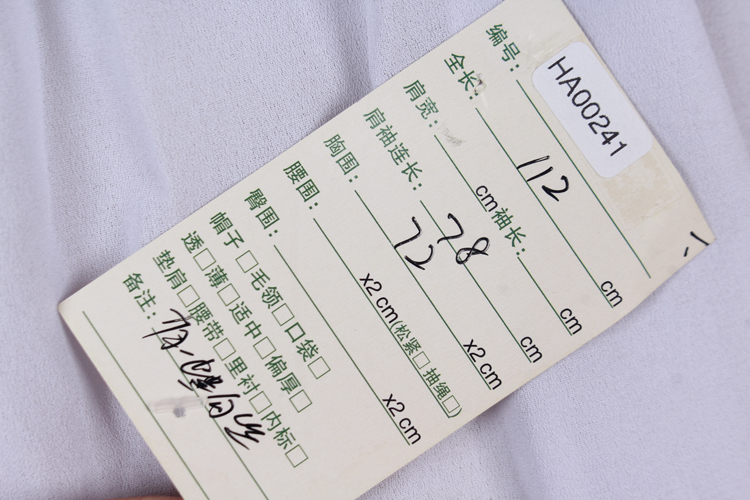 编号: HA00241
全长: 112 cm
肩宽: cm 袖长: cm
肩袖连长: 78 cm
胸围: 72 x2 cm
腰围: x2 cm(松紧□ 抽绳□)
臀围: x2 cm
帽子□ 毛领□ 口袋□
透□ 薄□ 适中□ 偏厚□
垫肩□ 腰带□ 里衬□ 内标□
备注: